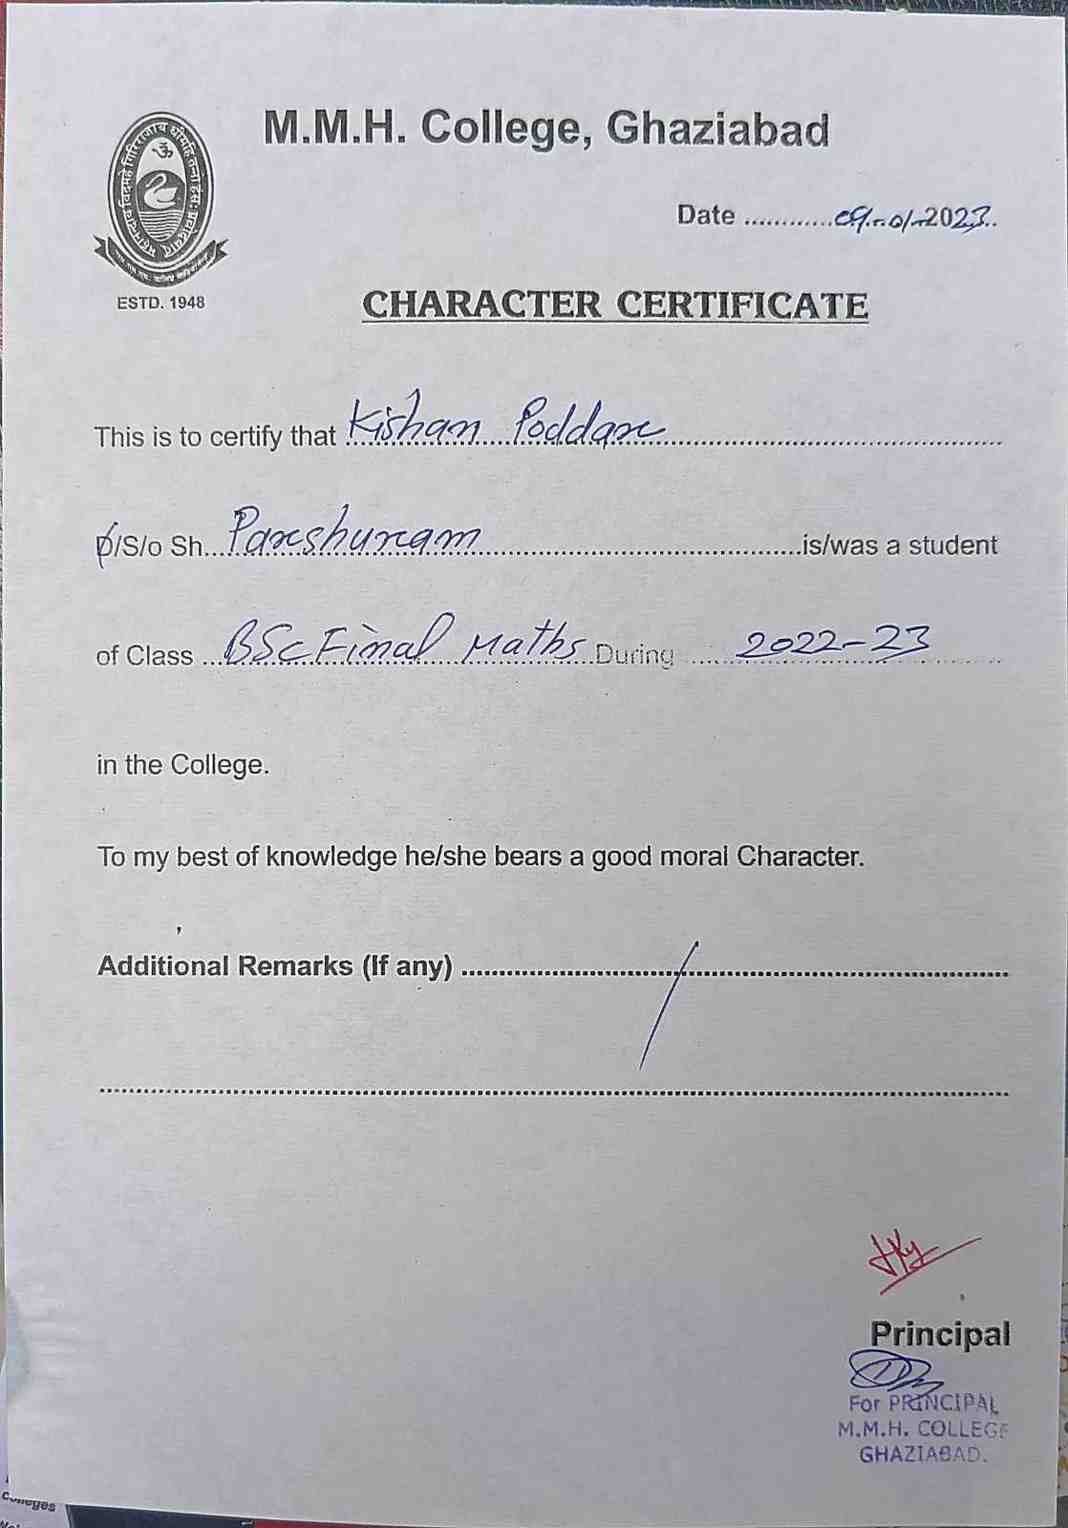 M.M.H. College, Ghaziabad
Date ............09-01-2023..
ESTD. 1948
CHARACTER CERTIFICATE
This is to certify that Kishan Poddar
D/S/o Sh. Parshuram is/was a student
of Class BSc Final Maths During 2022-23
in the College.
To my best of knowledge he/she bears a good moral Character.
Additional Remarks (If any)
Principal
For PRINCIPAL
M.M.H. COLLEGE
GHAZIABAD.
colleges